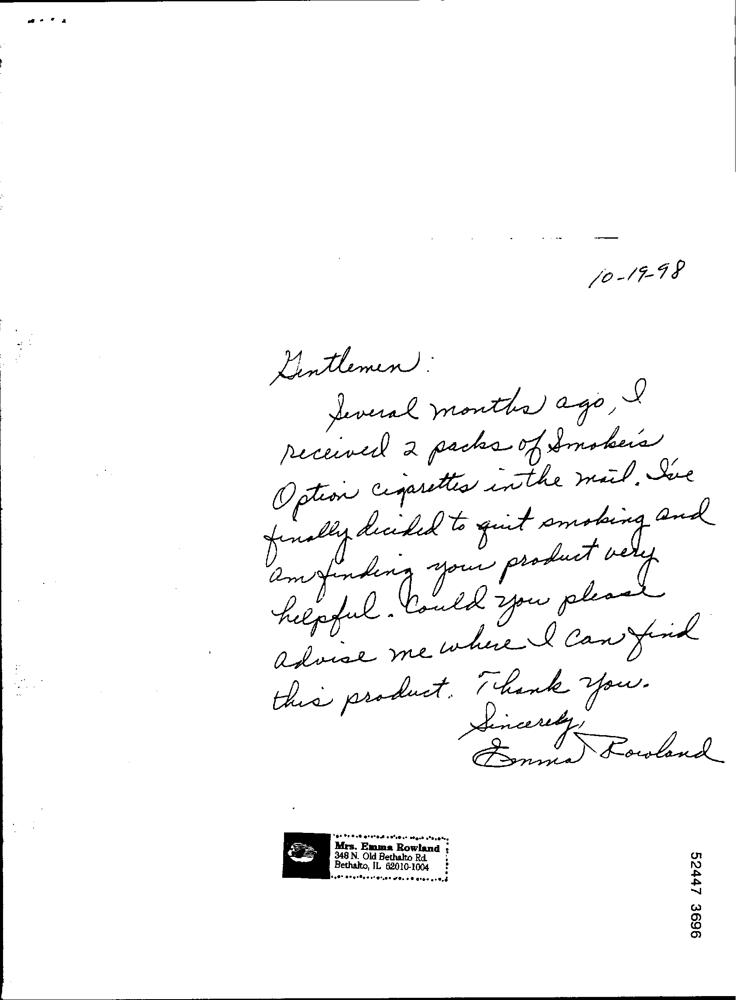 10-19-98
Gentlemen:
Several months ago, I
received 2 packs of Smoker's
Option cigarettes in the mail. I've
finally decided to quit smoking and
am finding your product very
helpful. Could you please
advise me where I can find
this product. Thank you.
Sincerely,
Emma Rowland
Mrs. Emma Rowland
348 N. Old Bethalto Rd.
Bethalto, IL 62010-1004
52447 3696